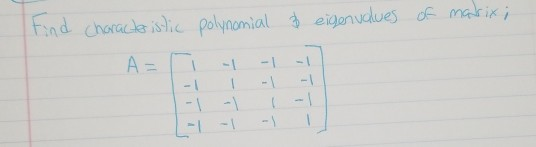 Find characteristic polynomial & eigenvalues of matrix;
A = [ 1 -1 -1 -1
-1 1 -1 -1
-1 -1 1 -1
-1 -1 -1 1 ]